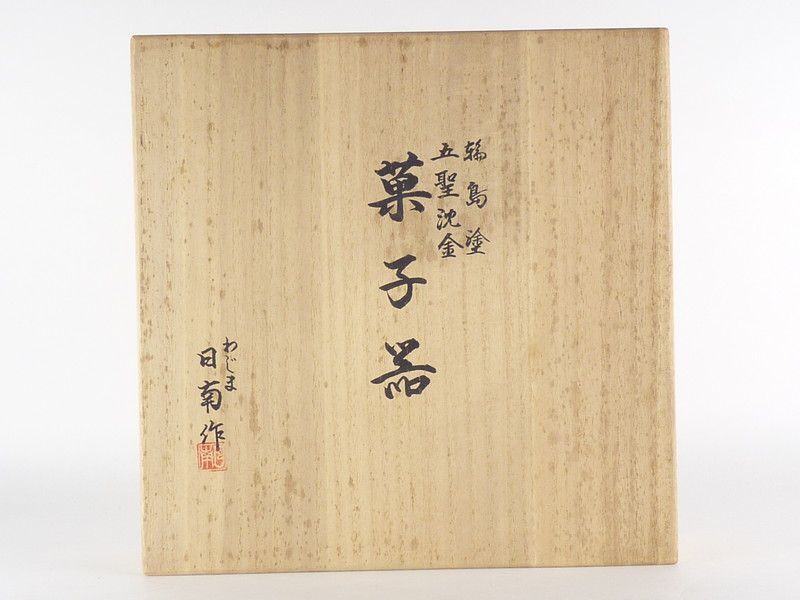 輪島塗
五聖沈金
菓子器
わじま
日南作